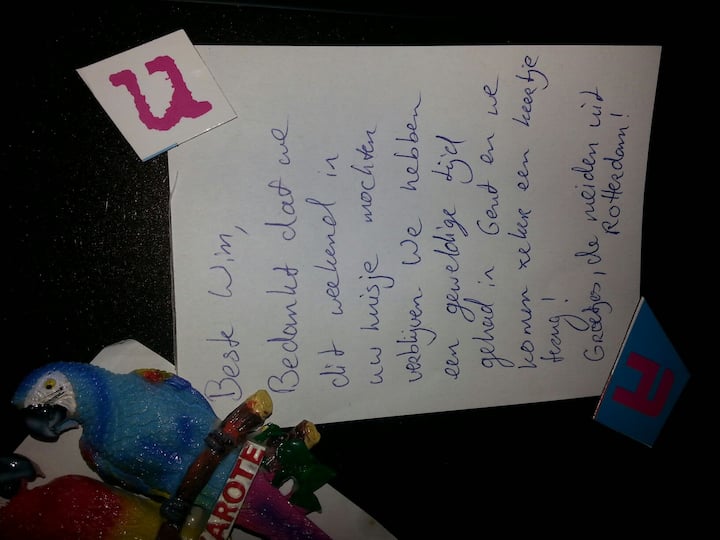 Beste Wim,
Bedankt dat we
dit weekend in
uw huisje mochten
verblijven. We hebben
een geweldige tijd
gehad in Gent en we
komen zeker een keertje
terug!
Groetjes, de meiden uit
Rotterdam!
AROTE